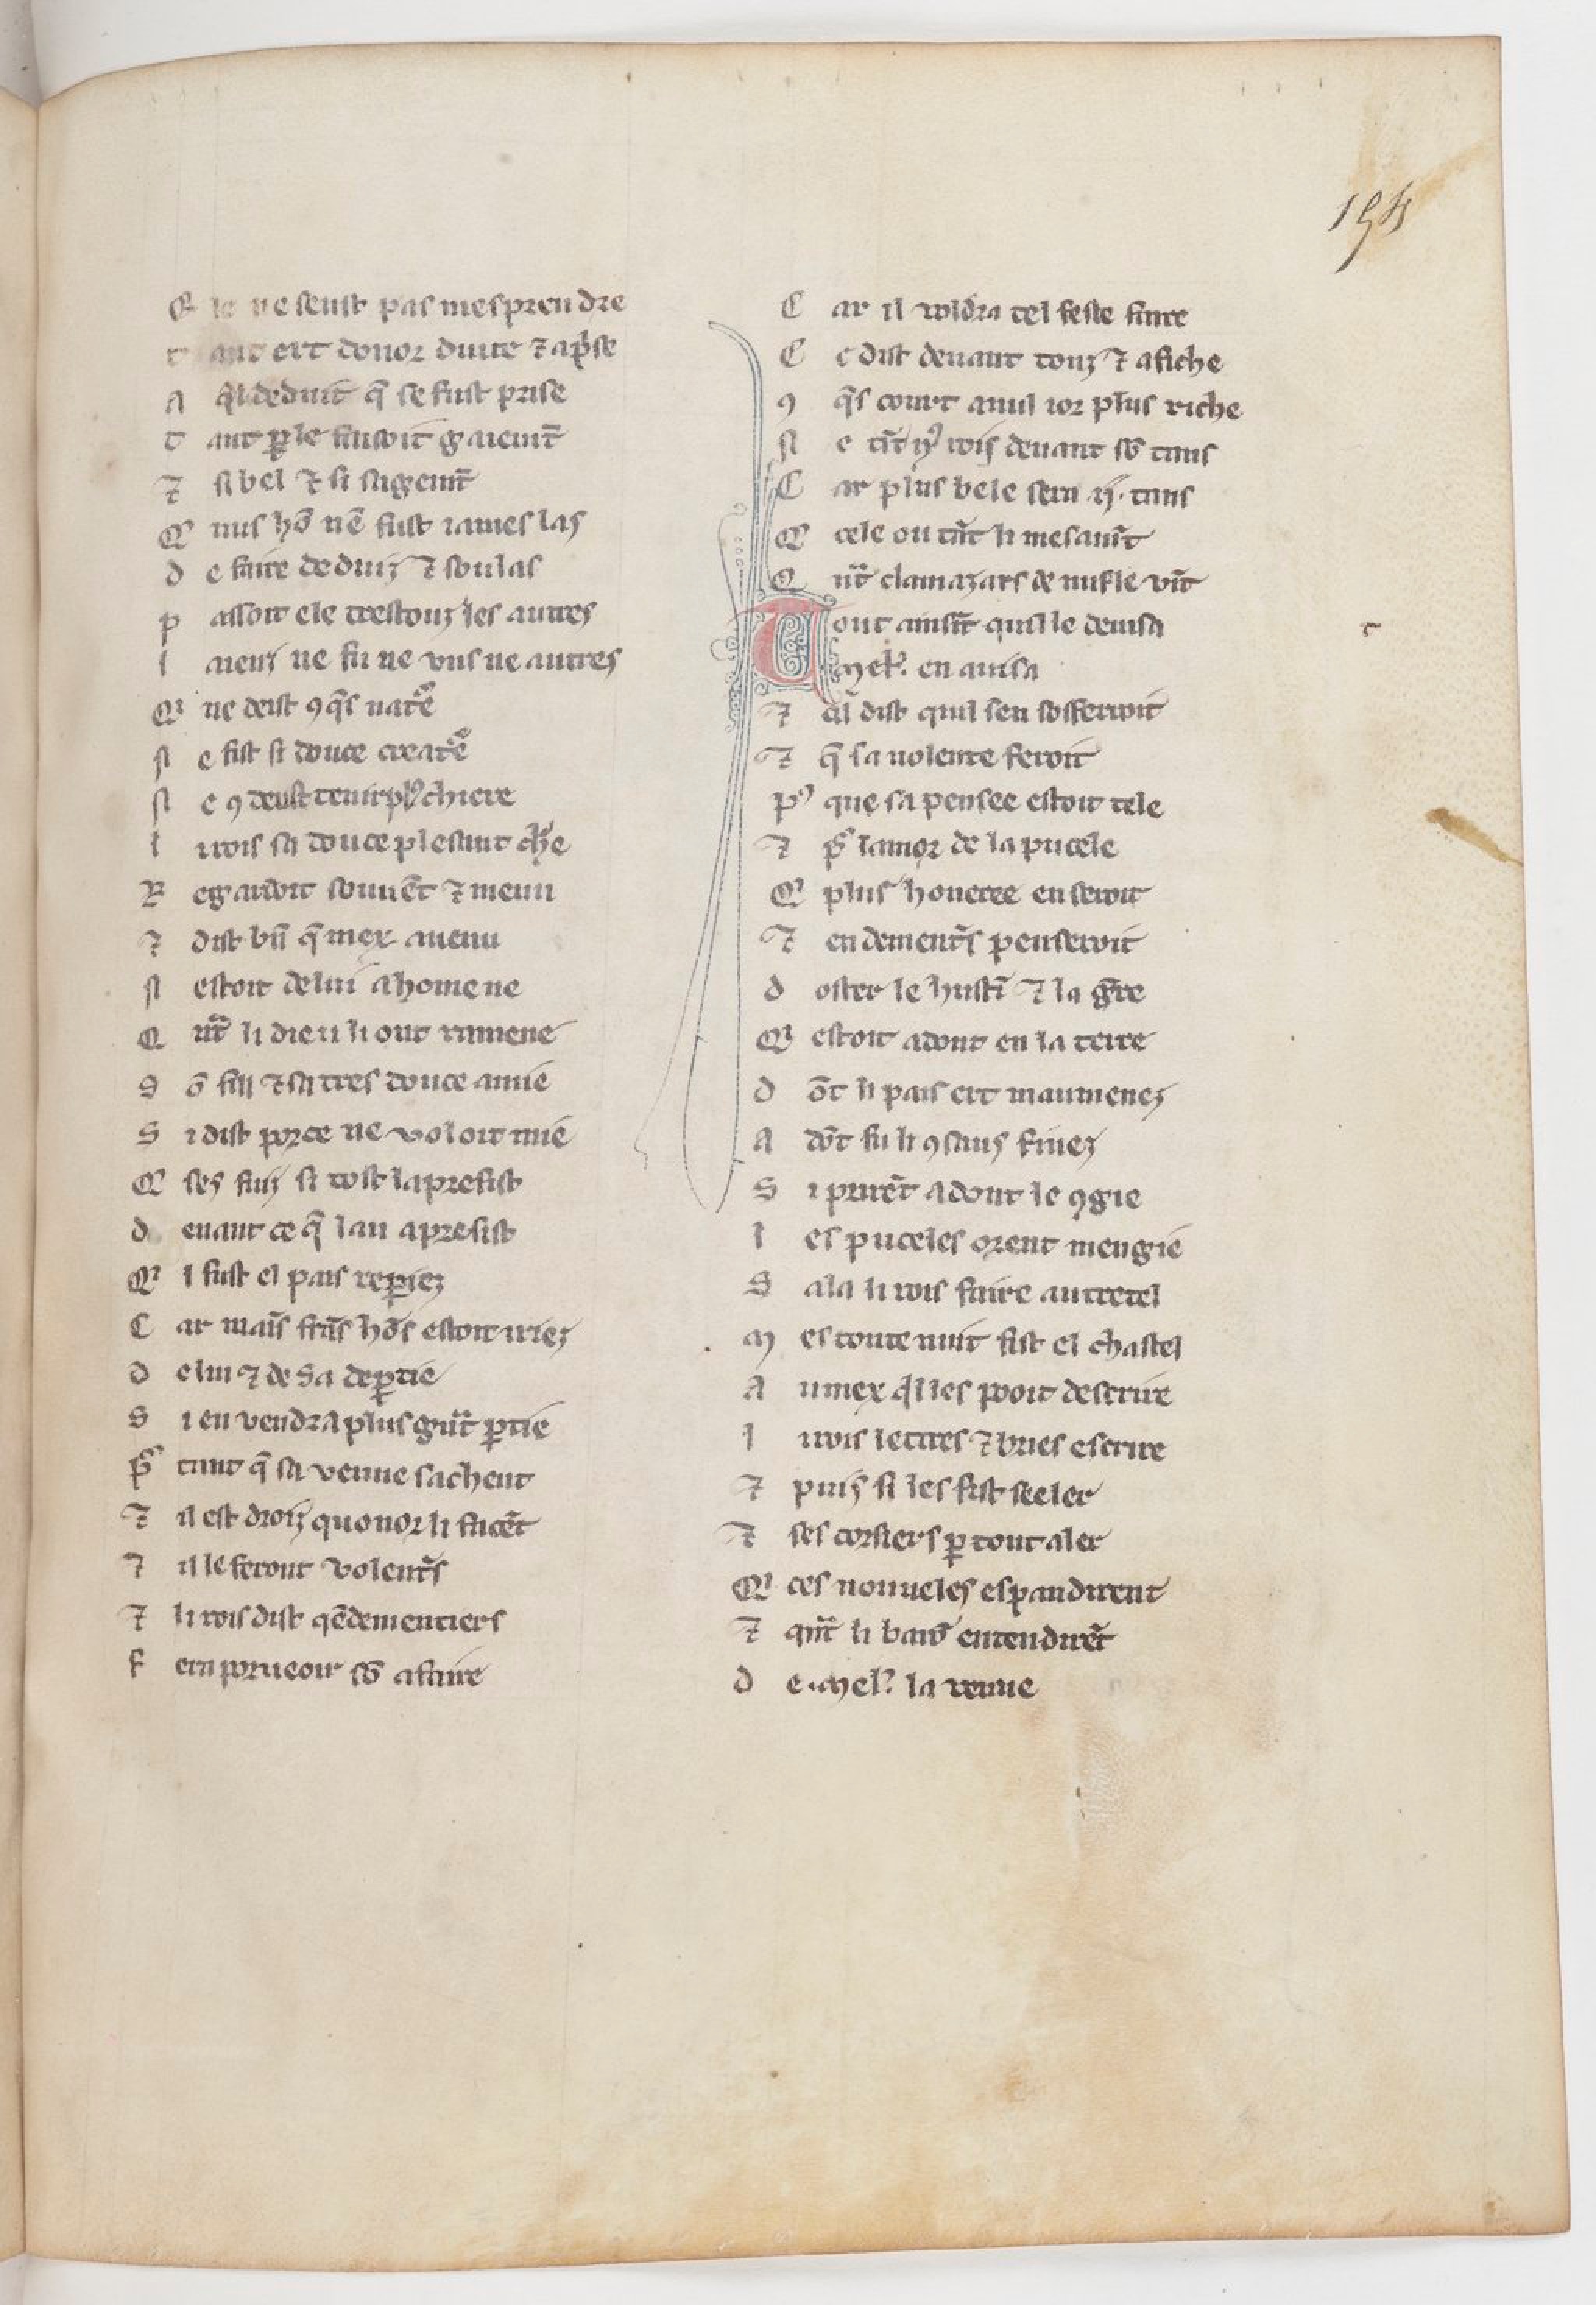 194
E le ne seust pas mesprendre
t ant ert donor duite ⁊ ap̃se
A q̃l deduit q̃ se fust prise
T ant ꝑ le fausoit gaiemt̃
⁊ si bel ⁊ si sagemt̃
Q nus hõ nẽ fust iames las
D e faire deduiz ⁊ soulas
P assoit ele trestouz les autres
L aienz ne fu ne vns ne autres
Q ne deist ꝯq̃s nature
N e fist si douce creature
N e ꝯ deust tenir plꝰ chiere
L i rois sa douce plesant chr̃e
R egardoit souuẽt ⁊ menu
⁊ dist bn̄ q̃ mex auenu
N estoit de lui a home ne
Q nt̃ li dieu li ont ramene
S õ fill ⁊ sa tres douce amie
S i dist por ce ne voloit mie
Q ses fuiz si tost la presist
D euant ce q̃ lan apresist
Q l fust el pais reperiez
C ar mains frans hõs estoit iriez
D e lui ⁊ de sa deꝑtie
S i en vendra plus gñt ꝑtie
P̃ tant q̃ sa venue sachent
⁊ il est droiz quonor li facẽt
⁊ il le feront volent̃s
⁊ li rois dist qẽdementiers
F era porueoir sõ afaire
C ar il voldra tel feste faire
C e dist deuant touz ⁊ afiche
ꝯ q̃s court a nul ior plus riche
N e tĩt nꝰ rois deuant sõ tans
C ar plus bele sera .ii. tans
Q cele ou tãt li mesauĩt
Q nt̃ clamazars de nufle vĩt
T out ainsĩt quil le deuisa
t
Mel᷒. en auisa
⁊ q̃l dist quil sen sofferroit
⁊ q̃ sa uolente feroit
Pꝰ que sa pensee estoit tele
⁊ p̃ lamor de la pucele
Q plus honeree en seroit
⁊ en dement̃s penseroit
D oster le hustĩ ⁊ la gr̃re
Q estoit adont en la terre
D õt li pais ert maumenez
A dõt fu li ꝯsaus finez
S i pritrẽt adont le ꝯgie
L es puceles orent mengie
S ala li rois faire autretel
M es toute nuit fist el chastel
A u mex q̃l les pooit descrire
L i rois lettres ⁊ bries escrire
⁊ puis si les fist seeler
⁊ ses corsiers ꝑ tout aler
Q ces nouueles espandirent
⁊ qñt li baro᷒ entendirẽt
D e .Mel᷒. la venue